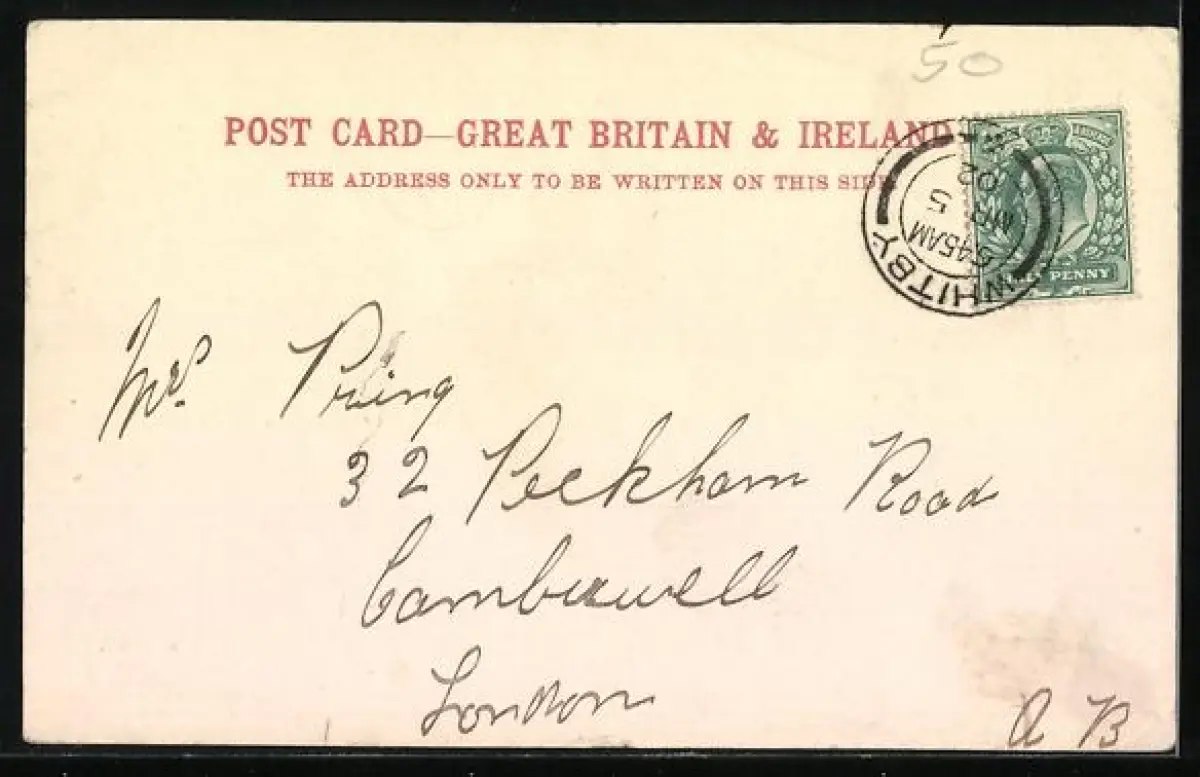 50
POST CARD—GREAT BRITAIN & IRELAND
THE ADDRESS ONLY TO BE WRITTEN ON THIS SIDE
WHITBY
545AM
MR 5
02
PENNY
Mrs. Pring
32 Peckham Road
Camberwell
London
A B